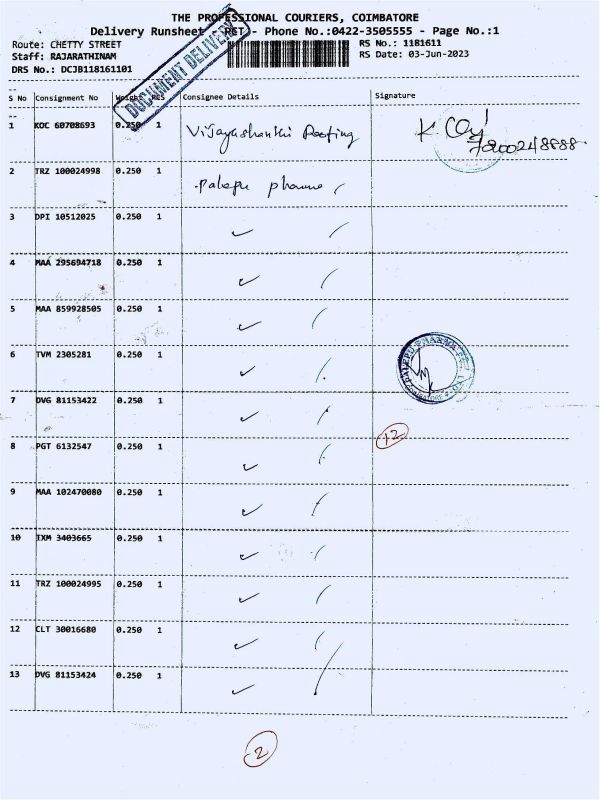 THE PROFESSIONAL COURIERS, COIMBATORE
Delivery Runsheet - RCT - Phone No.:0422-3505555 - Page No.:1
Route: CHETTY STREET
RS No.: 1181611
Staff: RAJARATHINAM
RS Date: 03-Jun-2023
DRS No.: DCJB118161101
DOCUMENT DELIVERY
S No Consignment No Weight PCS Consignee Details Signature
1 KOC 60708693 0.250 1 Vijayashanthi Roofing
2 TRZ 100024998 0.250 1 palepu pharma
3 DPI 10512025 0.250 1
4 MAA 295694718 0.250 1
5 MAA 859928505 0.250 1
6 TVM 2305281 0.250 1
PALEPU PHARMA
7 DVG 81153422 0.250 1
12
8 PGT 6132547 0.250 1
9 MAA 102470080 0.250 1
10 IXM 3403665 0.250 1
11 TRZ 100024995 0.250 1
12 CLT 30016680 0.250 1
13 DVG 81153424 0.250 1
2